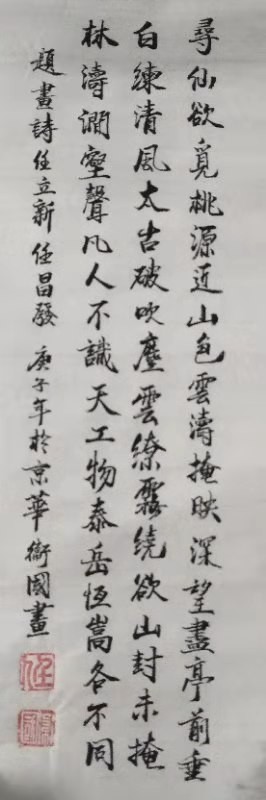 尋仙欲覓桃源近山色雲濤掩映深望盡亭前垂
白練清風太古破吹塵雲繚霧繞欲山封未掩
林濤澗壑聲凡人不識天工物泰岳恒嵩各不同
題畫詩任立新任昌發庚子年於京華衛國畫